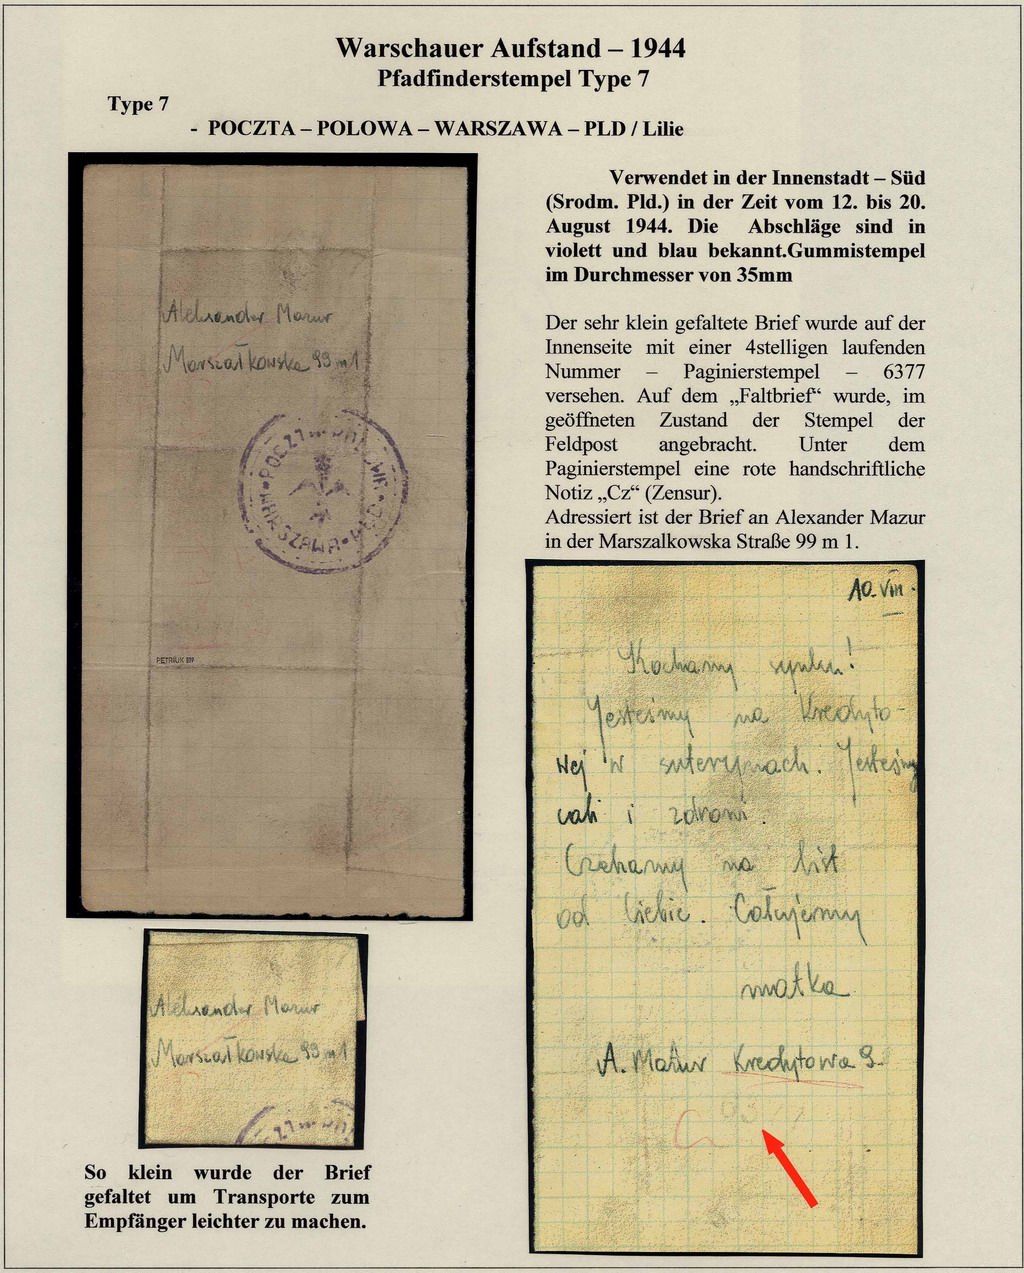 Warschauer Aufstand – 1944
Pfadfinderstempel Type 7
Type 7
- POCZTA – POLOWA – WARSZAWA – PLD / Lilie
Aleksander Mazur
Marszałkowska 99 m 1
POCZTA POLOWA • WARSZAWA • PŁD •
PETRIUK BPP
Verwendet in der Innenstadt – Süd
(Srodm. Pld.) in der Zeit vom 12. bis 20.
August 1944. Die Abschläge sind in
violett und blau bekannt.Gummistempel
im Durchmesser von 35mm
Der sehr klein gefaltete Brief wurde auf der
Innenseite mit einer 4stelligen laufenden
Nummer – Paginierstempel – 6377
versehen. Auf dem „Faltbrief“ wurde, im
geöffneten Zustand der Stempel der
Feldpost angebracht. Unter dem
Paginierstempel eine rote handschriftliche
Notiz „Cz“ (Zensur).
Adressiert ist der Brief an Alexander Mazur
in der Marszalkowska Straße 99 m 1.
10.VIII.
Kochany synku!
Jesteśmy na Kredyto-
wej w suterynach. Jesteśmy
cali i zdrowi.
Czekamy na list
od Ciebie. Całujemy
matka
A. Mazur Kredytowa 9.
Aleksander Mazur
Marszałkowska 99 m 1
So klein wurde der Brief
gefaltet um Transporte zum
Empfänger leichter zu machen.